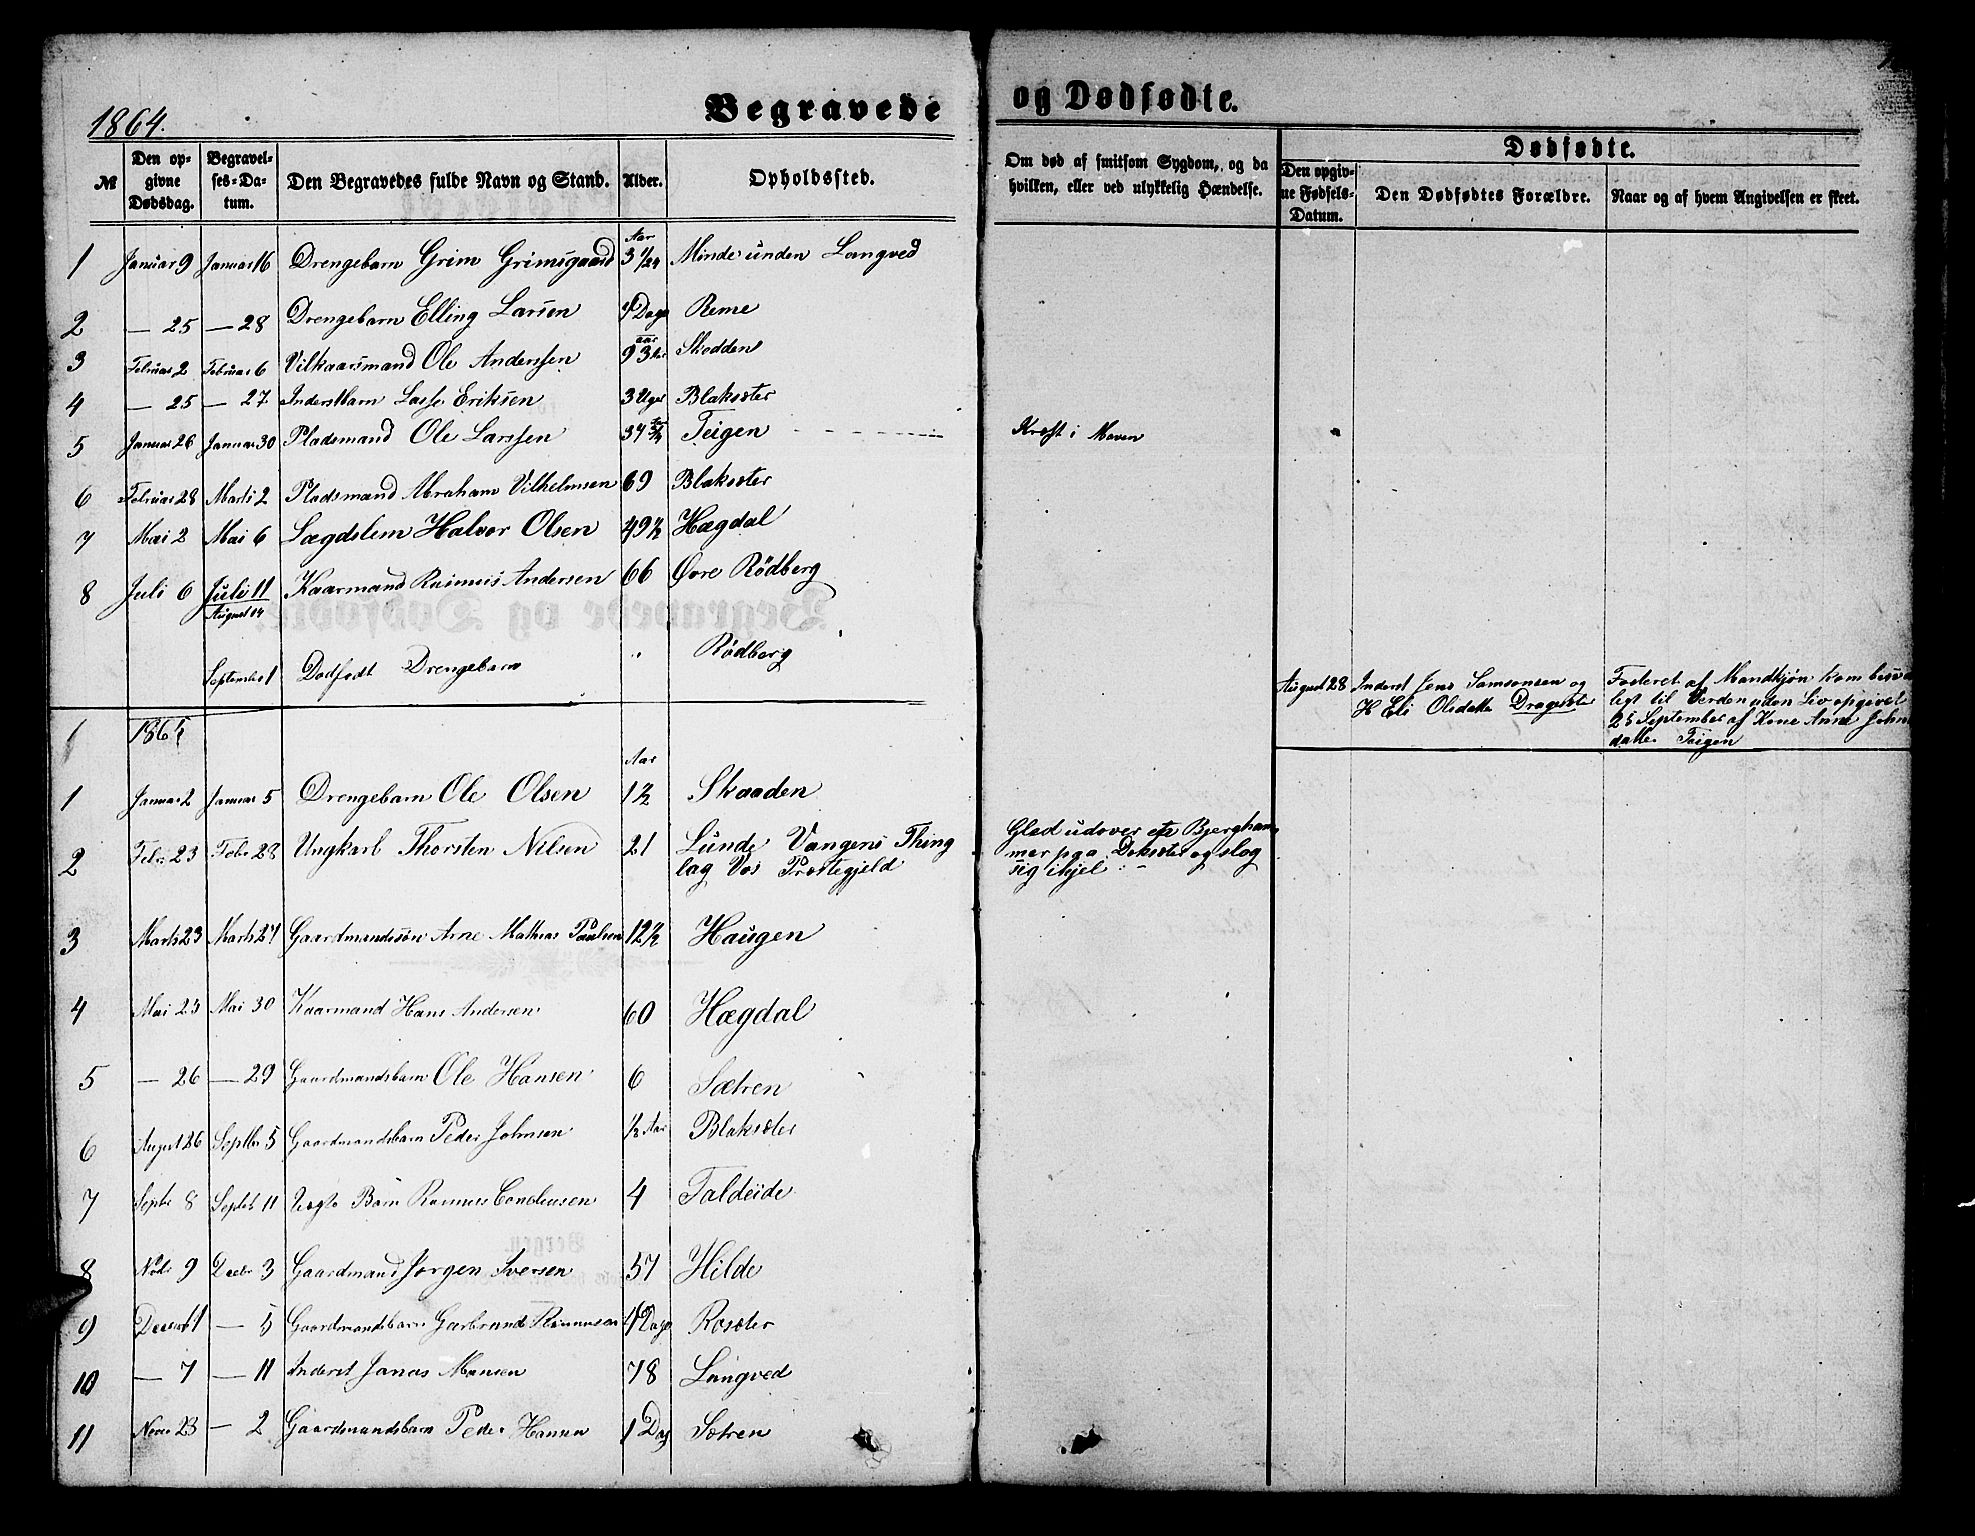 1864.
Begravede og Dødfødte.
№ Den opgivne Dødsdag. Begravelses-Datum. Den Begravedes fulde Navn og Stand. Alder. Opholdssted. Om død af smitsom Sygdom, og da hvilken, eller ved ulykkelig Hændelse.
Dødfødte.
Den opgivne Fødsels-Datum. Den Dødfødtes Forældre. Naar og af hvem Angivelsen er skeet.
Aar
1 Januar 9 Januar 16 Drengebarn Grim Grimsgaard 3 1/24 Minde unden Langved
2 — 25 — 28 Drengebarn Elling Larsen 9 Dage Reme
3 Februar 2 Februar 6 Vilkaarsmand Ole Anderssen 93 Aar Skodden
4 — 25 — 27 Inderstbarn Lasse Eriksen 3 Uger Blaksæter
5 Januar 26 Januar 30 Pladsmand Ole Larssen 34 Teigen Kreft i Maven
6 Februar 28 Marts 2 Pladsmand Abraham Vilhelmsen 69 Blaksæter
7 Mai 2 Mai 6 Lægdslem Halvor Olsen 49 ½ Hægdal
8 Juli 6 Juli 11 Kaarmand Rasmus Andersen 66 Øvre Rødberg
August 14
September 1 Dødfødt Drengebarn " Rødberg
August 28 Inderst Jens Samsonsen og
H Eli Olsdatter Dragseter
Fosteret af Mandkjøn kom
til Verden uden Liv opgivet
25 September af Kone Anne John
datter Teigen
1865
Aar
1 Januar 2 Januar 5 Drengebarn Ole Olsen 1½ Skaaden
2 Febr 23 Febr 28 Ungkarl Thorsten Nilsen 21 Lunde Vangens Thing
lag Vos Præstegjeld
Gled udover en Bjergham
mer paa og slog
sig ihjel
3 Marts 23 Marts 27 Gaardmandssøn Arne Mathias Paulsen 12½ Haugen
4 Mai 25 Mai 30 Kaarmand Hans Andersen 60 Hægdal
5 — 26 — 29 Gaardmandsbarn Ole Hansen 6 Sætren
6 August 26 Septbr 5 Gaardmandsbarn Peder Johnsen ½ Aar Blaksæter
7 Septbr 8 Septbr 11 Barn Rasmus 4 Taldeide
8 Novbr 9 Decbr 3 Gaardmand Jørgen Iversen 57 Hilde
9 Decbr 1 — 5 Gaardmandsbarn Garbrand Rasmussen Dage Rosæter
10 — 7 — 11 Inderst Jonas Monsen 78 Langved
11 Novbr 23 — 2 Gaardmandsbarn Peder Hansen 1 Dag Sætren